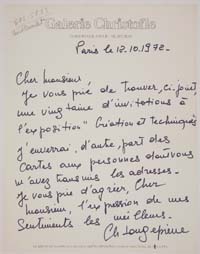 Galerie Christofle
Paris le 12.10.1972-
Cher Monsieur
Je vous prie de trouver, ci-joint,
une vingtaine d'invitations à
l'exposition "Création et techniques
J'enverrai, d'autre part des
Cartes aux personnes dont vous
m'avez transmis les adresses-
Je vous prie d'agréer, Cher
Monsieur, l'expression de mes
Sentiments les meilleurs-